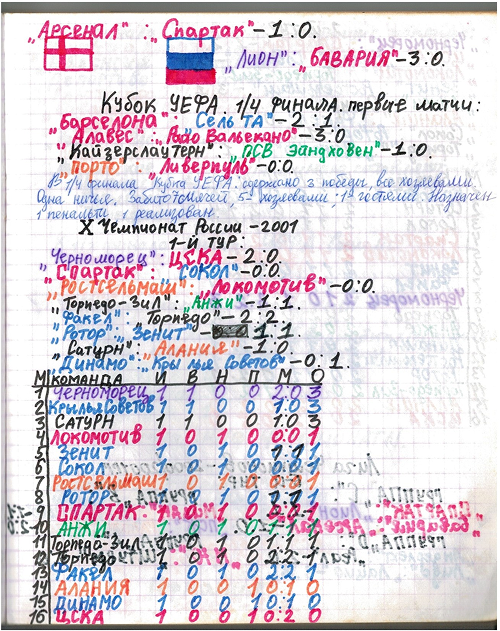 „Арсенал" : „Спартак" – 1:0.
„Лион" : „БАВАРИЯ" – 3:0.
Кубок УЕФА. 1/4 финала. первые матчи:
„Барселона" : „Сельта" – 2:1.
„Алавес" : „Райо Вальекано" – 3:0.
„Кайзерслаутерн" : „ПСВ Эйндховен" – 1:0.
„Порто" : „Ливерпуль" – 0:0.
В 1/4 финала Кубка УЕФА. одержано 3 победы, все хозяевами.
Одна ничья. Забито 7 мячей,
1 пенальти 1 реализован.
X Чемпионат России – 2001
1-й ТУР:
„Черноморец" : ЦСКА – 2:0.
„Спартак" : „СОКОЛ" – 0:0.
„Ростсельмаш" : „Локомотив" – 0:0.
„Торпедо-ЗиЛ" : „Анжи" – 1:1.
„Факел" : „Торпедо" – 2:2.
„Ротор" : „Зенит" – 1:1.
„Сатурн" : „АЛАНИЯ" – 1:0.
„Динамо" : „Крылья Советов" – 0:1.
М КОМАНДА И В Н П М О
1 ЧЕРНОМОРЕЦ 1 1 0 0 2:0 3
2 КРЫЛЬЯ СОВЕТОВ 1 1 0 0 1:0 3
3 САТУРН 1 1 0 0 1:0 3
4 ЛОКОМОТИВ 1 0 1 0 0:0 1
5 ЗЕНИТ 1 0 1 0 1:1 1
6 СОКОЛ 1 0 1 0
7 РОСТСЕЛЬМАШ 1 0 1 0
8 РОТОР 1 0 1 0 1:1 1
9 СПАРТАК 1 0 1 0
10 АНЖИ 1 0 1 0 1:1 1
11 Торпедо-ЗиЛ 1 0 1 0 1:1 1
12 Торпедо 1 0 1 0 2:2 1
13 ФАКЕЛ 1 0 1 0 2:2 1
14 АЛАНИЯ 1 0 0 1 0:1 0
15 ДИНАМО 1 0 0 1 0:1 0
16 ЦСКА 1 0 0 1 0:2 0